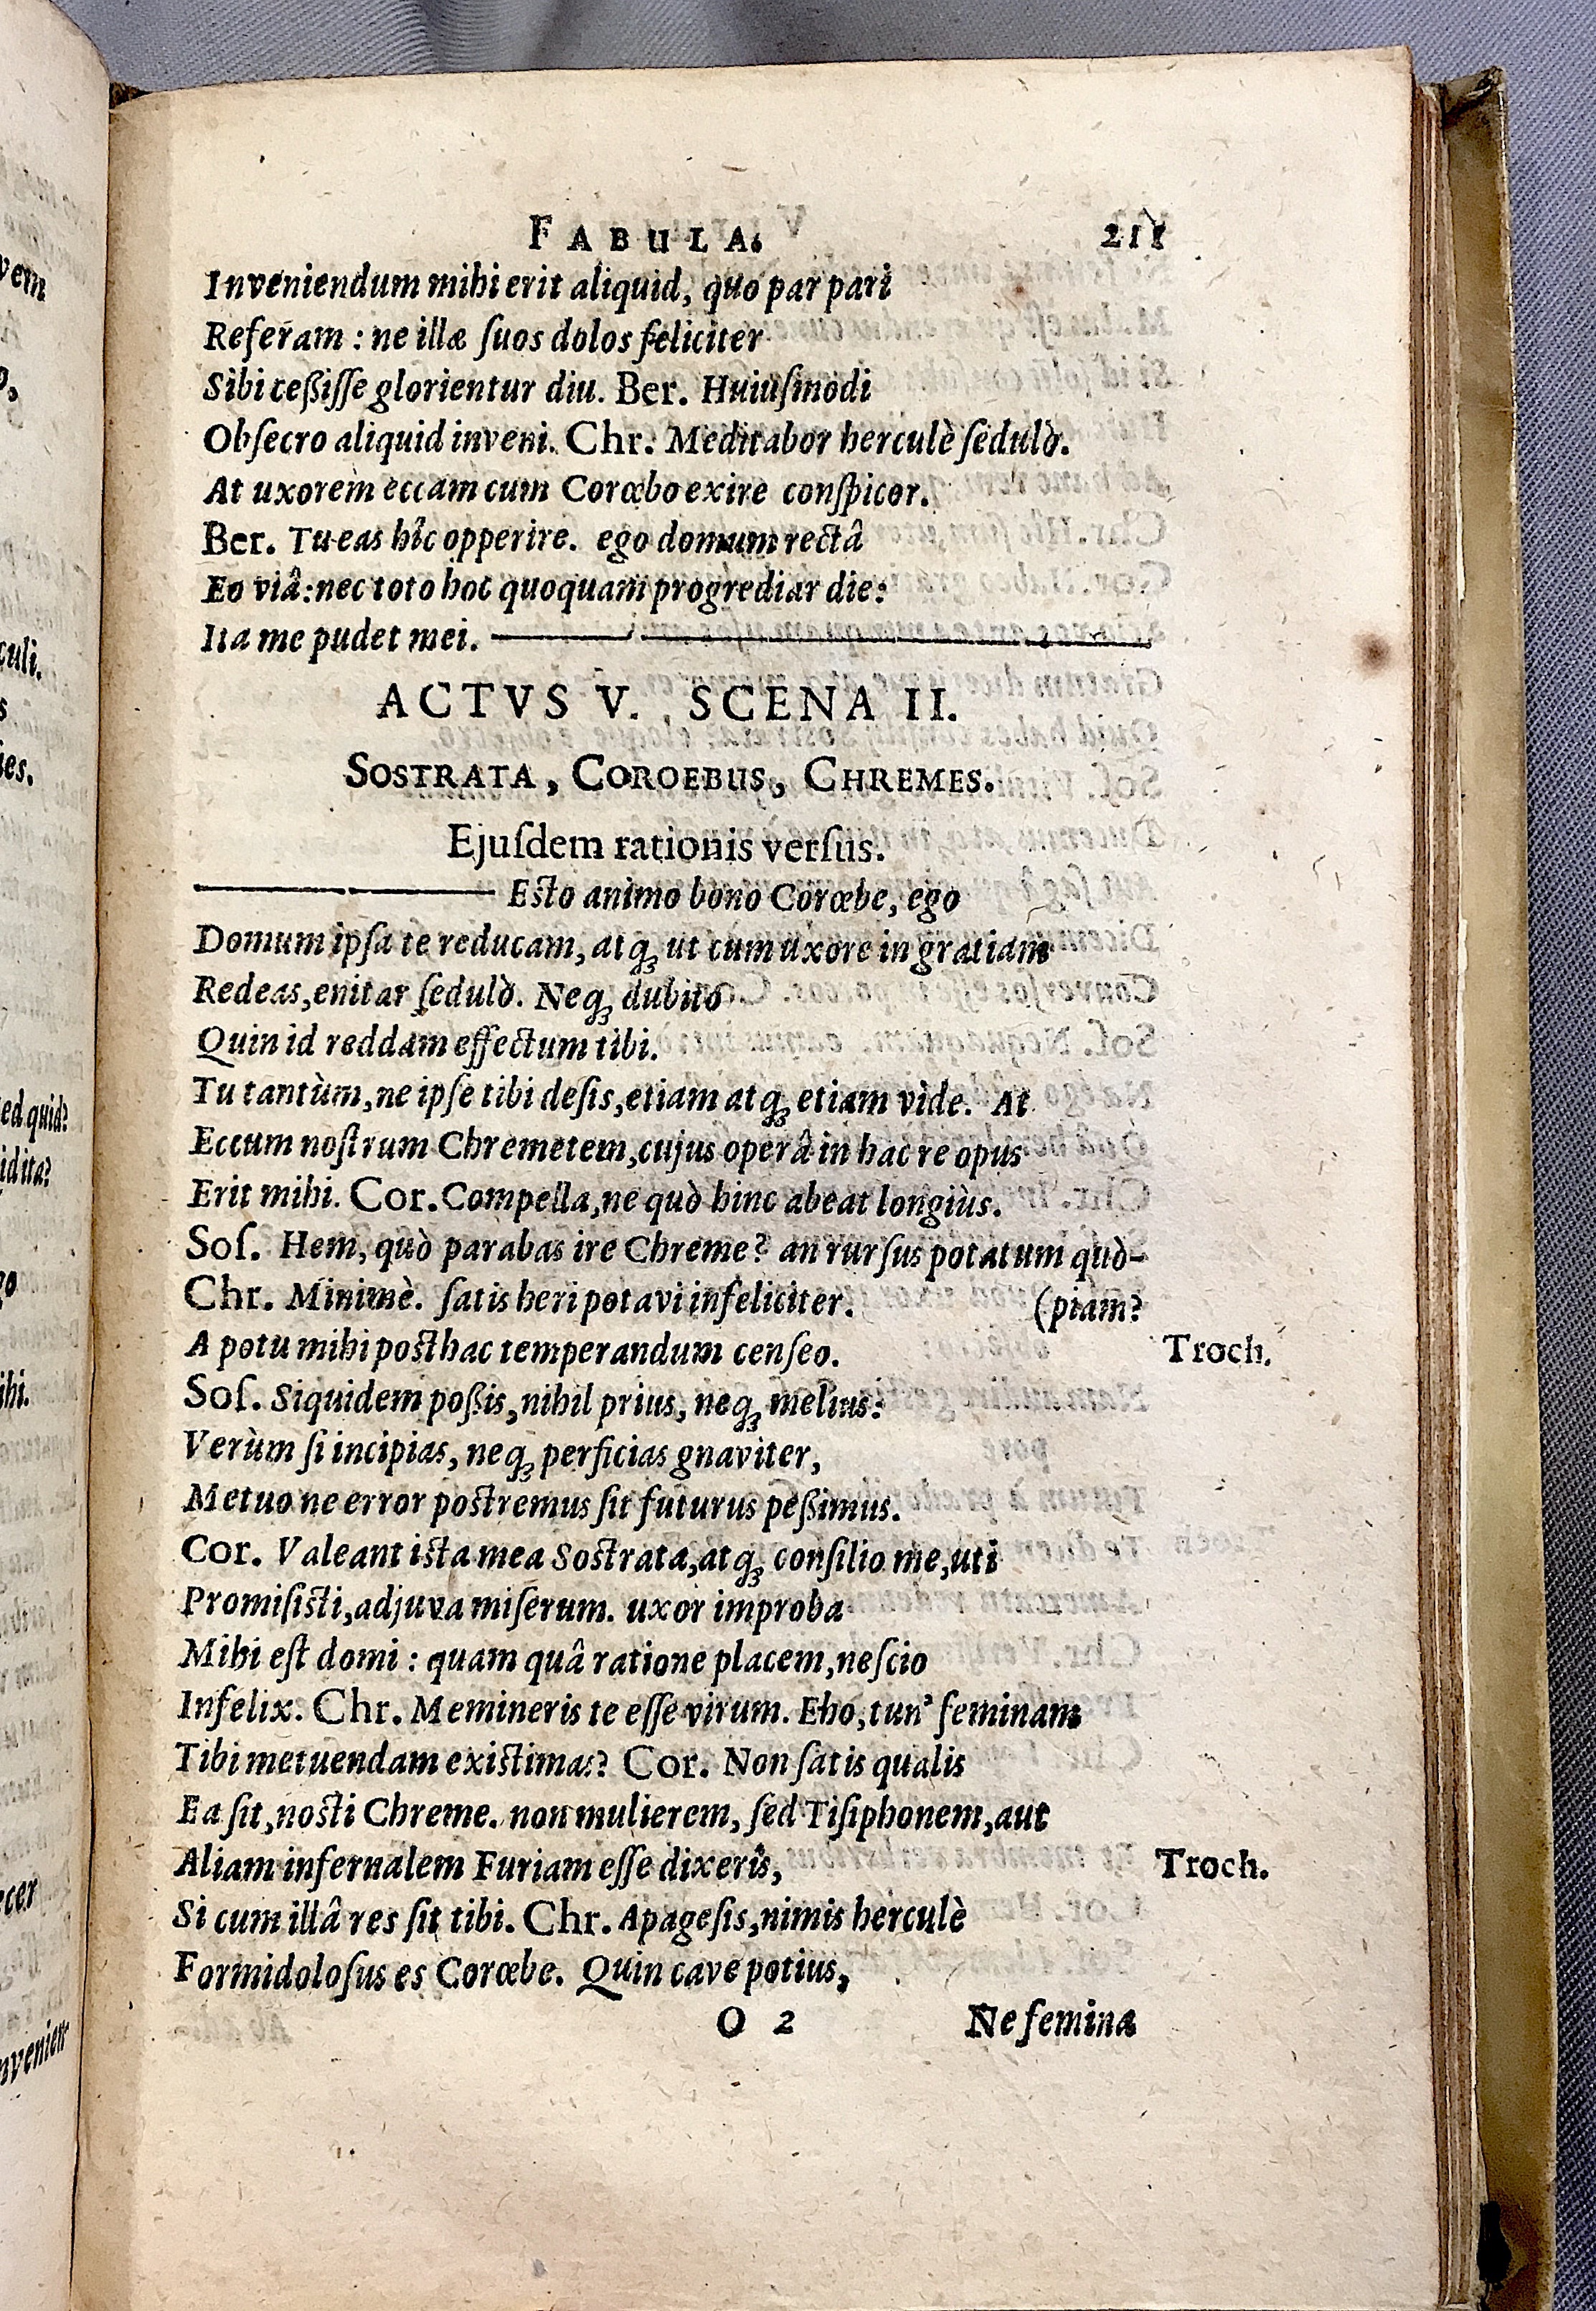 FABULA. 211
Inveniendum mihi erit aliquid, quo par pari
Referam : ne illæ ſuos dolos feliciter
Sibi ceßiſſe glorientur diu. Ber. Huiuſmodi
Obſecro aliquid inveni. Chr. Meditabor herculè ſedulò.
At uxorem eccam cum Corœbo exire conſpicor.
Ber. Tu eas hîc opperire. ego domum rectâ
Eo viâ: nec toto hoc quoquam progrediar die:
Ita me pudet mei.
ACTVS V. SCENA II.
SOSTRATA, COROEBUS, CHREMES.
Ejuſdem rationis verſus.
Esto animo bono Corœbe, ego
Domum ipſa te reducam, atq; ut cum uxore in gratiam
Redeas, enitar ſedulò. Neq; dubito
Quin id reddam effectum tibi.
Tu tantùm, ne ipſe tibi deſis, etiam atq; etiam vide. At
Eccum noſtrum Chremetem, cujus operâ in hac re opus
Erit mihi. Cor. Compella, ne quò hinc abeat longiùs.
Soſ. Hem, quò parabas ire Chreme? an rurſus potatum quò-
Chr. Minimè. ſatis heri potavi infeliciter. (piam?
A potu mihi posthac temperandum cenſeo. Troch.
Soſ. Siquidem poßis, nihil prius, neq; melius:
Verùm ſi incipias, neq; perficias gnaviter,
Metuo ne error postremus ſit futurus peßimus.
Cor. Valeant ista mea Sostrata, atq; conſilio me, uti
Promiſisti, adjuva miſerum. uxor improba
Mihi eſt domi : quam quâ ratione placem, neſcio
Infelix. Chr. Memineris te eſſe virum. Eho, tun' feminam
Tibi metuendam existimas? Cor. Non ſatis qualis
Ea ſit, nosti Chreme. non mulierem, ſed Tiſiphonem, aut
Aliam infernalem Furiam eſſe dixeris, Troch.
Si cum illâ res ſit tibi. Chr. Apageſis, nimis herculè
Formidoloſus es Corœbe. Quin cave potius,
O 2 Ne femina